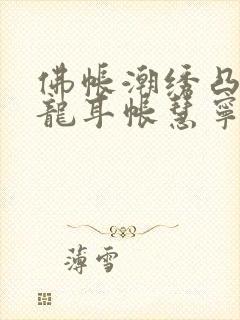 佛帐潮绣凸
龍耳帐慧寧
薄雪